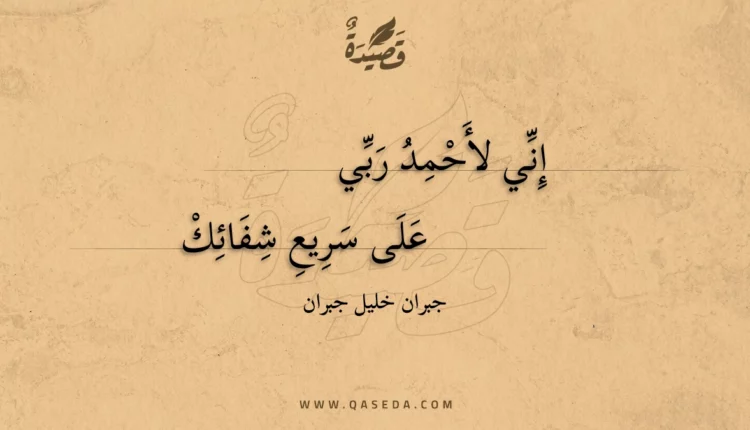 قَصِيدَةٌ
إِنِّي لأَحْمِدُ رَبِّي
عَلَى سَرِيعِ شِفَائِكْ
جبران خليل جبران
WWW.QASEDA.COM